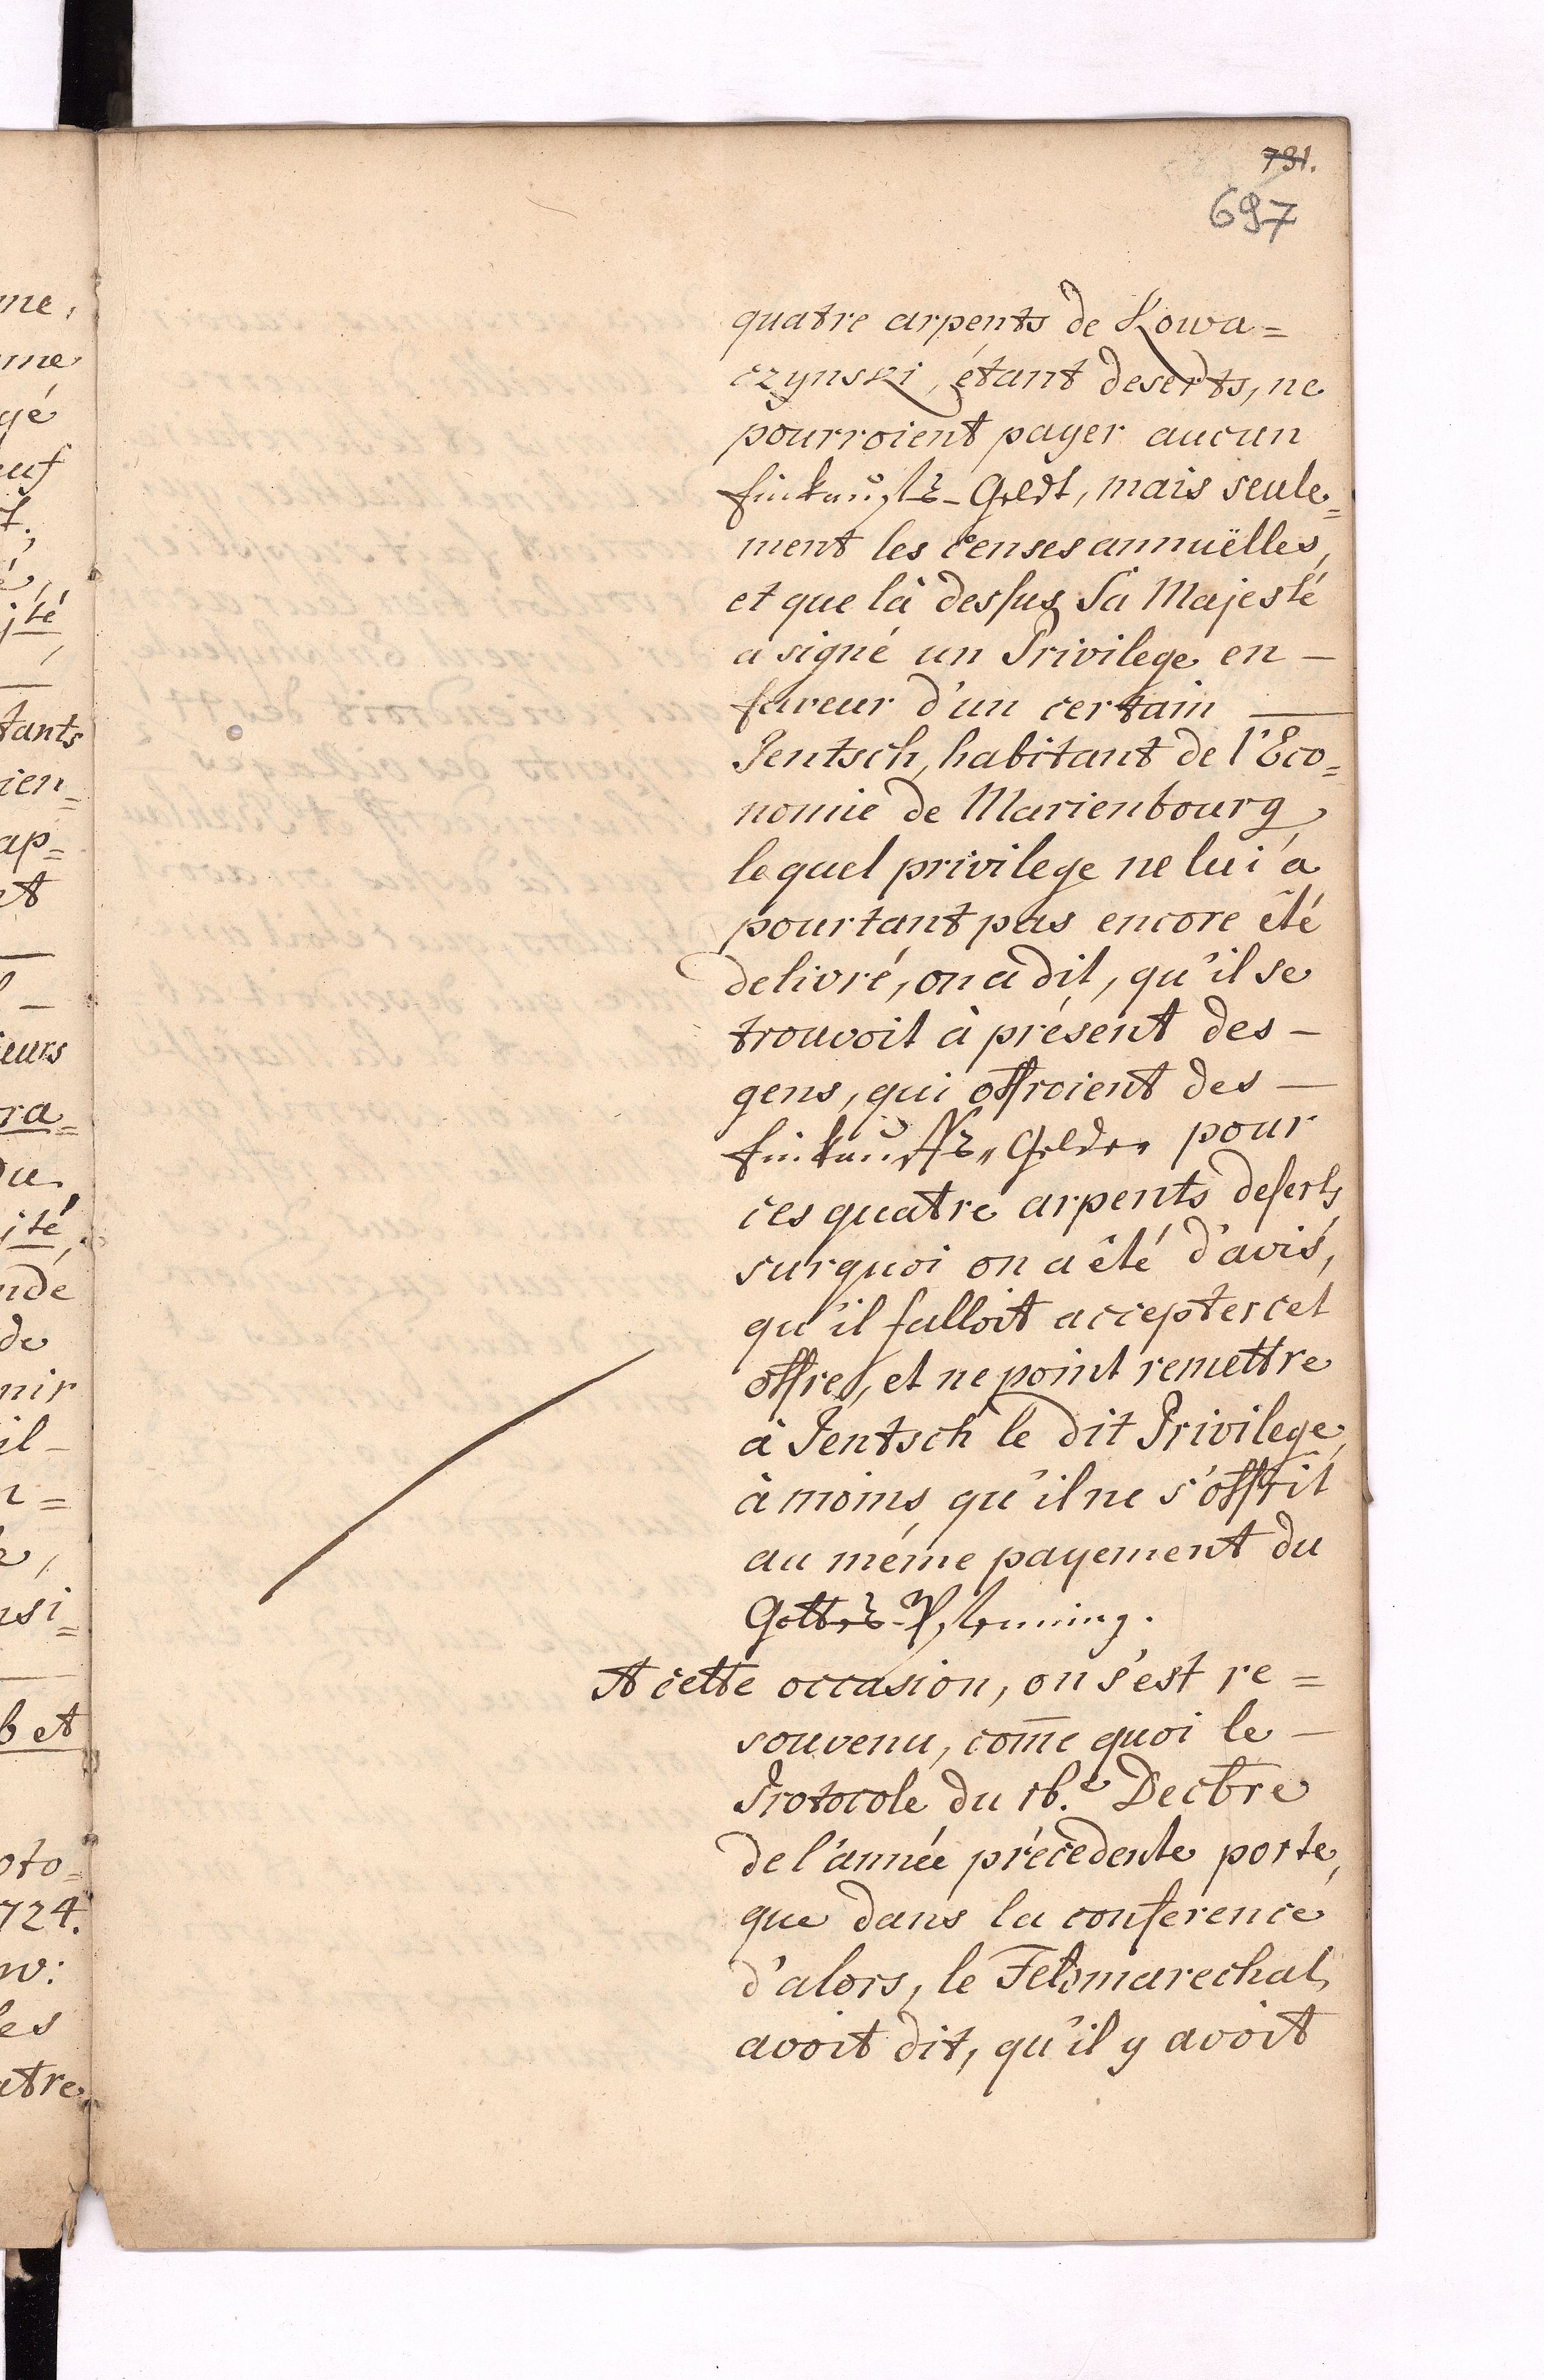 731.
697
quatre arpents de Kowa=
czynski, étant deserts, ne
pourroient payer aucun
Einkauffs-Geldt, mais seule=
ment les censes annuëlles,
et que là dessus Sa Majesté
a signé un Privilege en —
faveur d'un certain —
Jentsch, habitant de l'Eco=
nomie de Marienbourg
lequel privilege ne lui a
pourtant pas encore été
delivré, on a dit, qu'il se
trouvoit à présent des —
gens, qui offroient des —
Einkauffs-Gelder pour
ces quatre arpents deserts,
surquoi on a été d'avis,
qu'il falloit accepter cet
offre, et ne point remettre
à Jentsch le dit Privilege,
à moins qu'il ne s'offrit
au méme payement du
Gottes-Pfenning.
A cette occasion, on s'est re=
souvenu, com̄e quoi le —
Protocole du 16.e Decbre
de l'année précedente porte,
que dans la conference
d'alors, le Feldmarechal,
avoit dit, qu'il y avoit
me,
me
gé
euf
é,
jté
tants
ien=
ap=
et
l —
ieurs
ra=
du
jté,
ndé
de
nir
il —
n=
nsi=
b et
oto=
724.
w:
les
atre